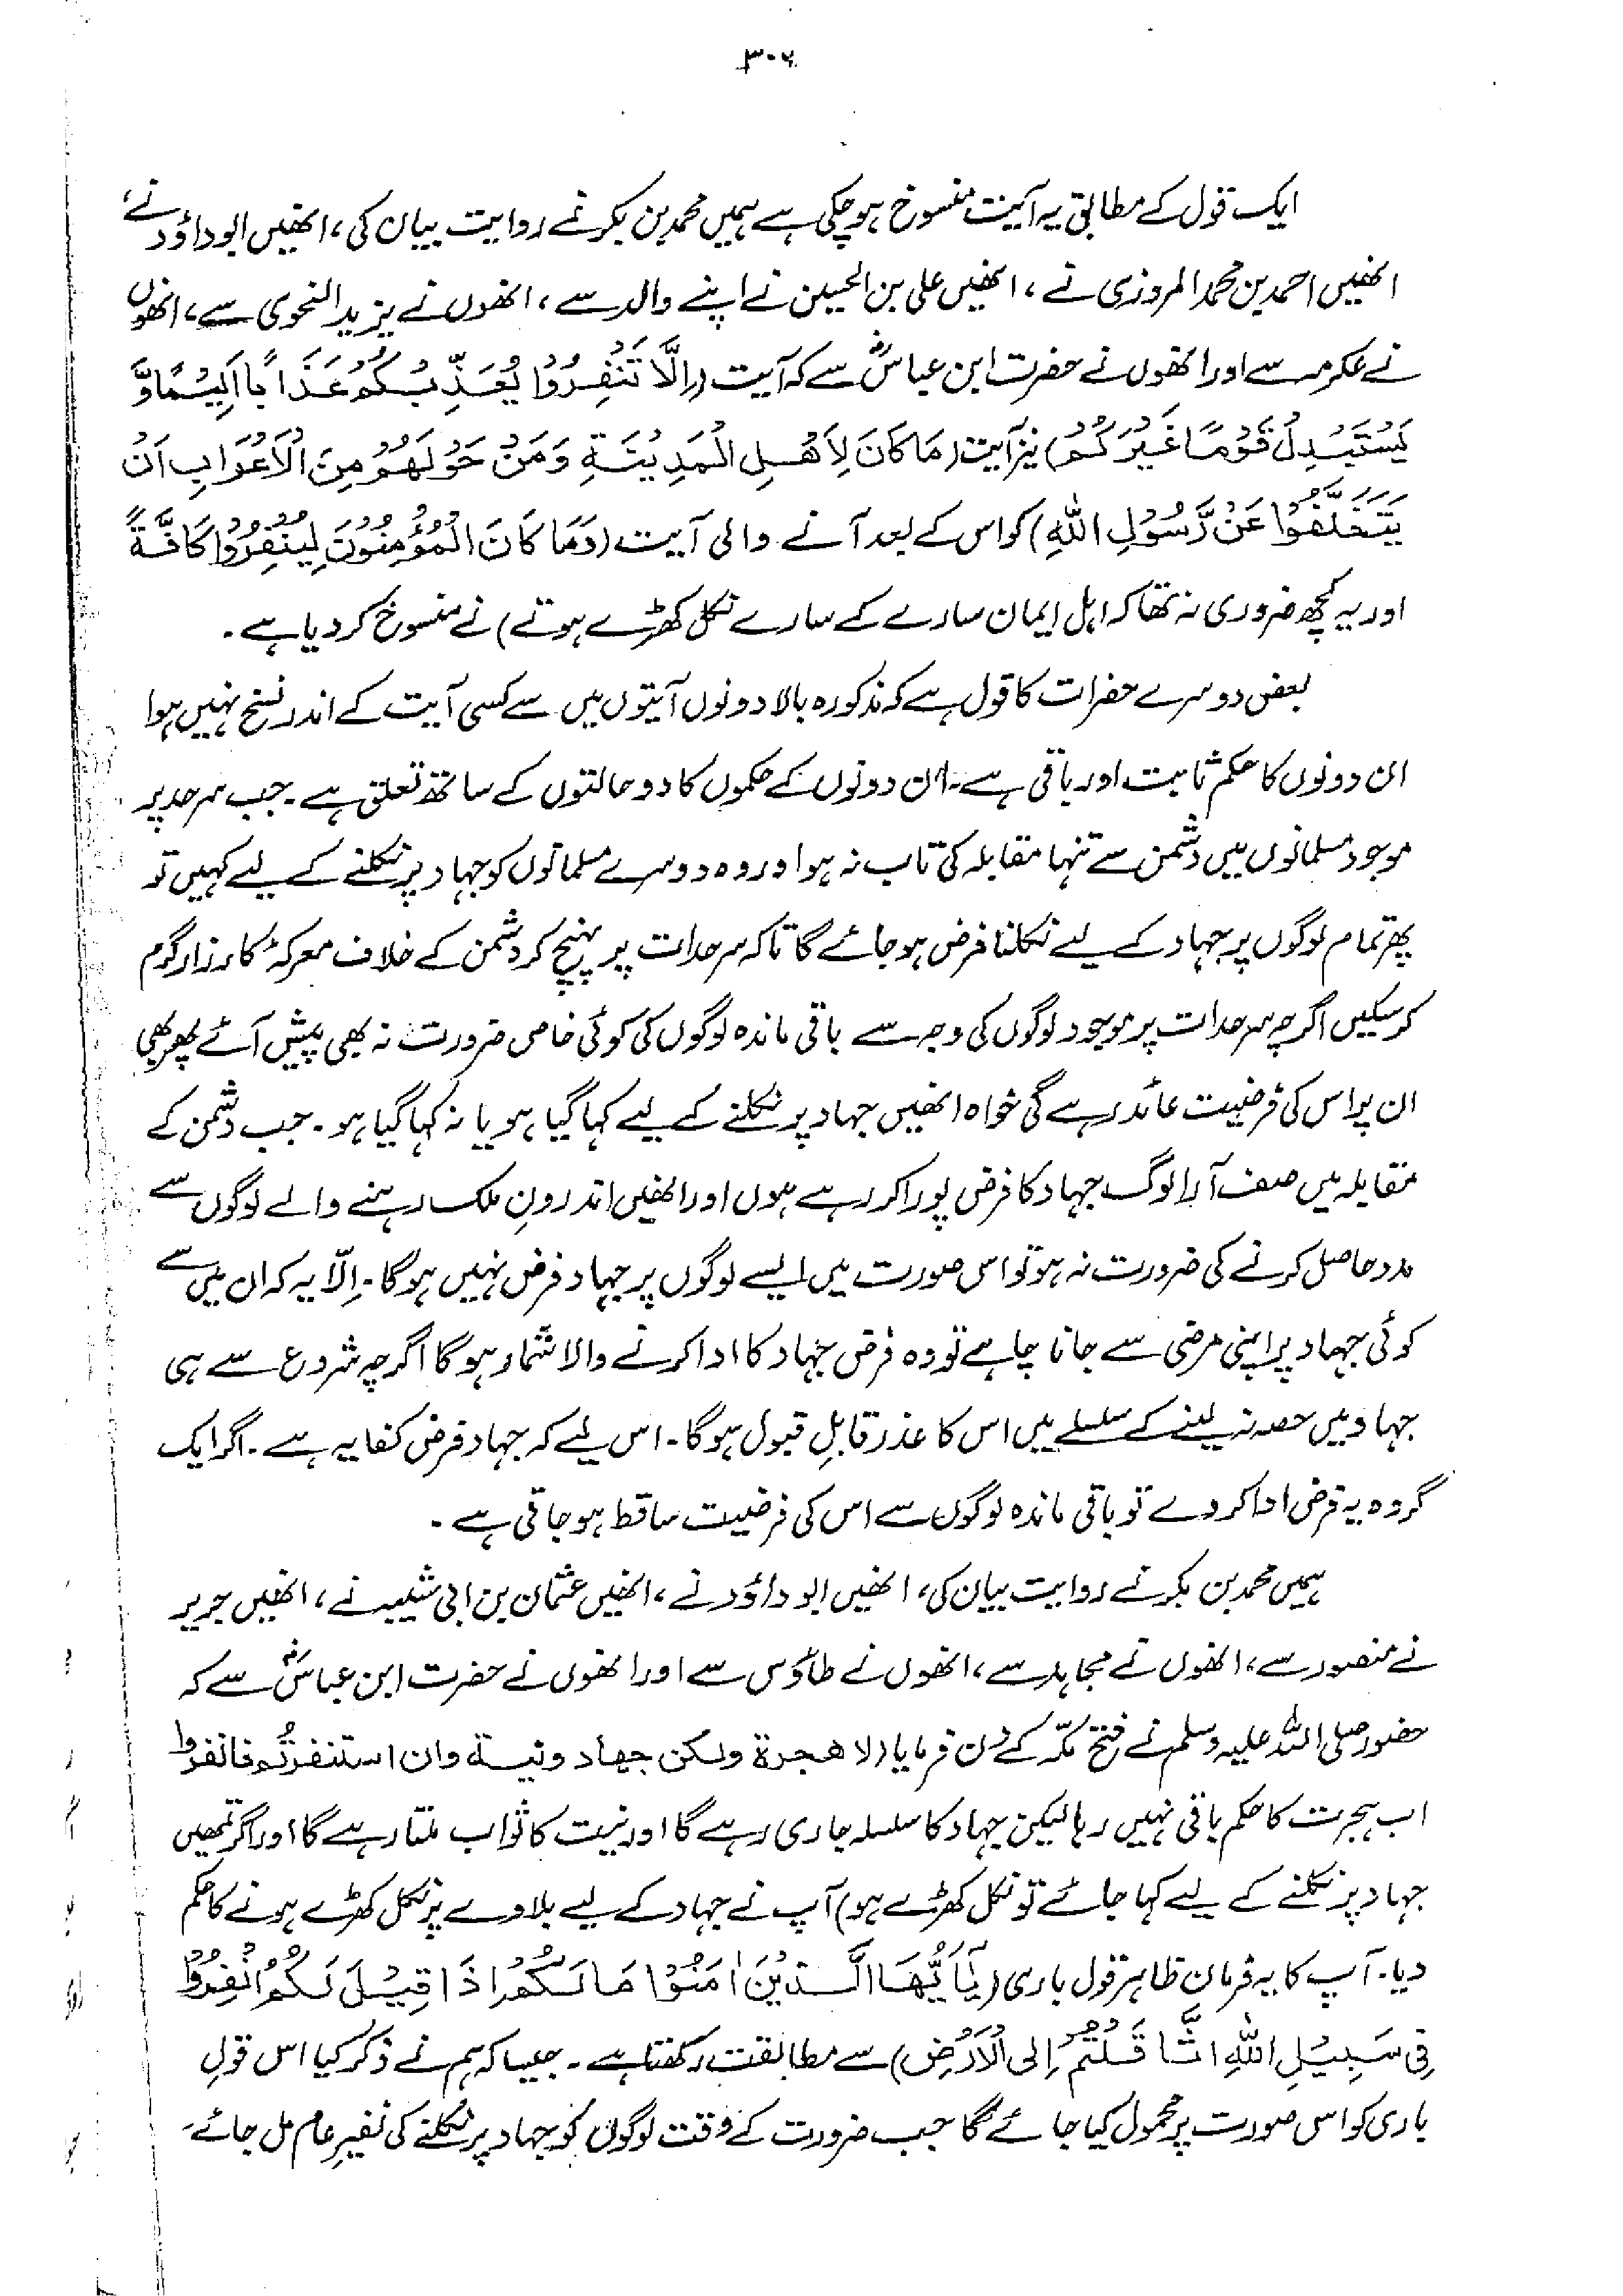 ۳۰۶
ایک قول کے مطابق یہ آیت منسوخ ہو چکی ہے ہمیں محمد بن بکر نے روایت بیان کی، انھیں ابوداؤد نے،
انھیں احمد بن محمد المروزی نے، انھیں علی بن الحسین نے اپنے والد سے، انھوں نے یزید النحوی سے، انھوں
نے عکرمہ سے اور انھوں نے حضرت ابن عباسؓ سے کہ آیت (اِلَّا تَنْفِرُوْا يُعَذِّبْكُمْ عَذَابًا اَلِيْمًا وَّ
يَسْتَبْدِلْ قَوْمًا غَيْرَكُمْ) نیز آیت (مَا كَانَ لِاَهْلِ الْمَدِيْنَةِ وَمَنْ حَوْلَهُمْ مِنَ الْاَعْرَابِ اَنْ
يَتَخَلَّفُوْا عَنْ رَّسُوْلِ اللّٰهِ) کو اس کے بعد آنے والی آیت (وَمَا كَانَ الْمُؤْمِنُوْنَ لِيَنْفِرُوْا كَافَّةً
اور یہ کچھ ضروری نہ تھا کہ اہل ایمان سارے کے سارے نکل کھڑے ہوتے) نے منسوخ کر دیا ہے۔
بعض دوسرے حضرات کا قول ہے کہ مذکورہ بالا دونوں آیتوں میں سے کسی آیت کے اندر نسخ نہیں ہوا
ان دونوں کا حکم ثابت اور باقی ہے۔ ان دونوں کے حکموں کا دو حالتوں کے ساتھ تعلق ہے۔ جب سرحد پر
موجود مسلمانوں میں دشمن سے تنہا مقابلہ کی تاب نہ ہو اور وہ دوسرے مسلمانوں کو جہاد پر نکلنے کے لیے کہیں تو
پھر تمام لوگوں پر جہاد کے لیے نکلنا فرض ہو جائے گا تاکہ سرحدات پر پہنچ کر دشمن کے خلاف معرکۂ کارزار گرم
کر سکیں اگرچہ سرحدات پر موجود لوگوں کی وجہ سے باقی ماندہ لوگوں کی کوئی خاص ضرورت نہ بھی پیش آئے پھر بھی
ان پر اس کی فرضیت عائد رہے گی خواہ انھیں جہاد پر نکلنے کے لیے کہا گیا ہو یا نہ کہا گیا ہو۔ جب دشمن کے
مقابلہ میں صف آرا لوگ جہاد کا فرض پورا کر رہے ہوں اور انھیں اندرونِ ملک رہنے والے لوگوں سے
مدد حاصل کرنے کی ضرورت نہ ہو تو اس صورت میں ایسے لوگوں پر جہاد فرض نہیں ہوگا۔ اِلّا یہ کہ ان میں سے
کوئی جہاد پر اپنی مرضی سے جانا چاہے تو وہ فرض جہاد کا ادا کرنے والا شمار ہوگا اگرچہ شروع سے ہی
جہاد میں حصہ نہ لینے کے سلسلے میں اس کا عذر قابلِ قبول ہوگا۔ اس لیے کہ جہاد فرض کفایہ ہے۔ اگر ایک
گروہ یہ فرض ادا کر دے تو باقی ماندہ لوگوں سے اس کی فرضیت ساقط ہو جاتی ہے۔
ہمیں محمد بن بکر نے روایت بیان کی، انھیں ابو داؤد نے، انھیں عثمان بن ابی شیبہ نے، انھیں جریر
نے منصور سے، انھوں نے مجاہد سے، انھوں نے طاؤس سے اور انھوں نے حضرت ابن عباسؓ سے کہ
حضور صلی اللہ علیہ وسلم نے فتح مکّہ کے دن فرمایا (لا هجرة ولكن جهاد ونية وان استنفرتُم فانفروا
اب ہجرت کا حکم باقی نہیں رہا لیکن جہاد کا سلسلہ جاری رہے گا اور نیت کا ثواب ملتا رہے گا اور اگر تمھیں
جہاد پر نکلنے کے لیے کہا جائے تو نکل کھڑے ہو) آپ نے جہاد کے لیے بلاوے پر نکل کھڑے ہونے کا حکم
دیا۔ آپ کا یہ فرمان ظاہر قول باری (يٰٓاَيُّهَا الَّذِيْنَ اٰمَنُوْا مَا لَكُمْ اِذَا قِيْلَ لَكُمُ انْفِرُوْا
فِىْ سَبِيْلِ اللّٰهِ اثَّاقَلْتُمْ اِلَى الْاَرْضِ) سے مطابقت رکھتا ہے۔ جیسا کہ ہم نے ذکر کیا اس قولِ
باری کو اس صورت پر محمول کیا جائے گا جب ضرورت کے وقت لوگوں کو جہاد پر نکلنے کی نفیرِ عام مل جائے۔